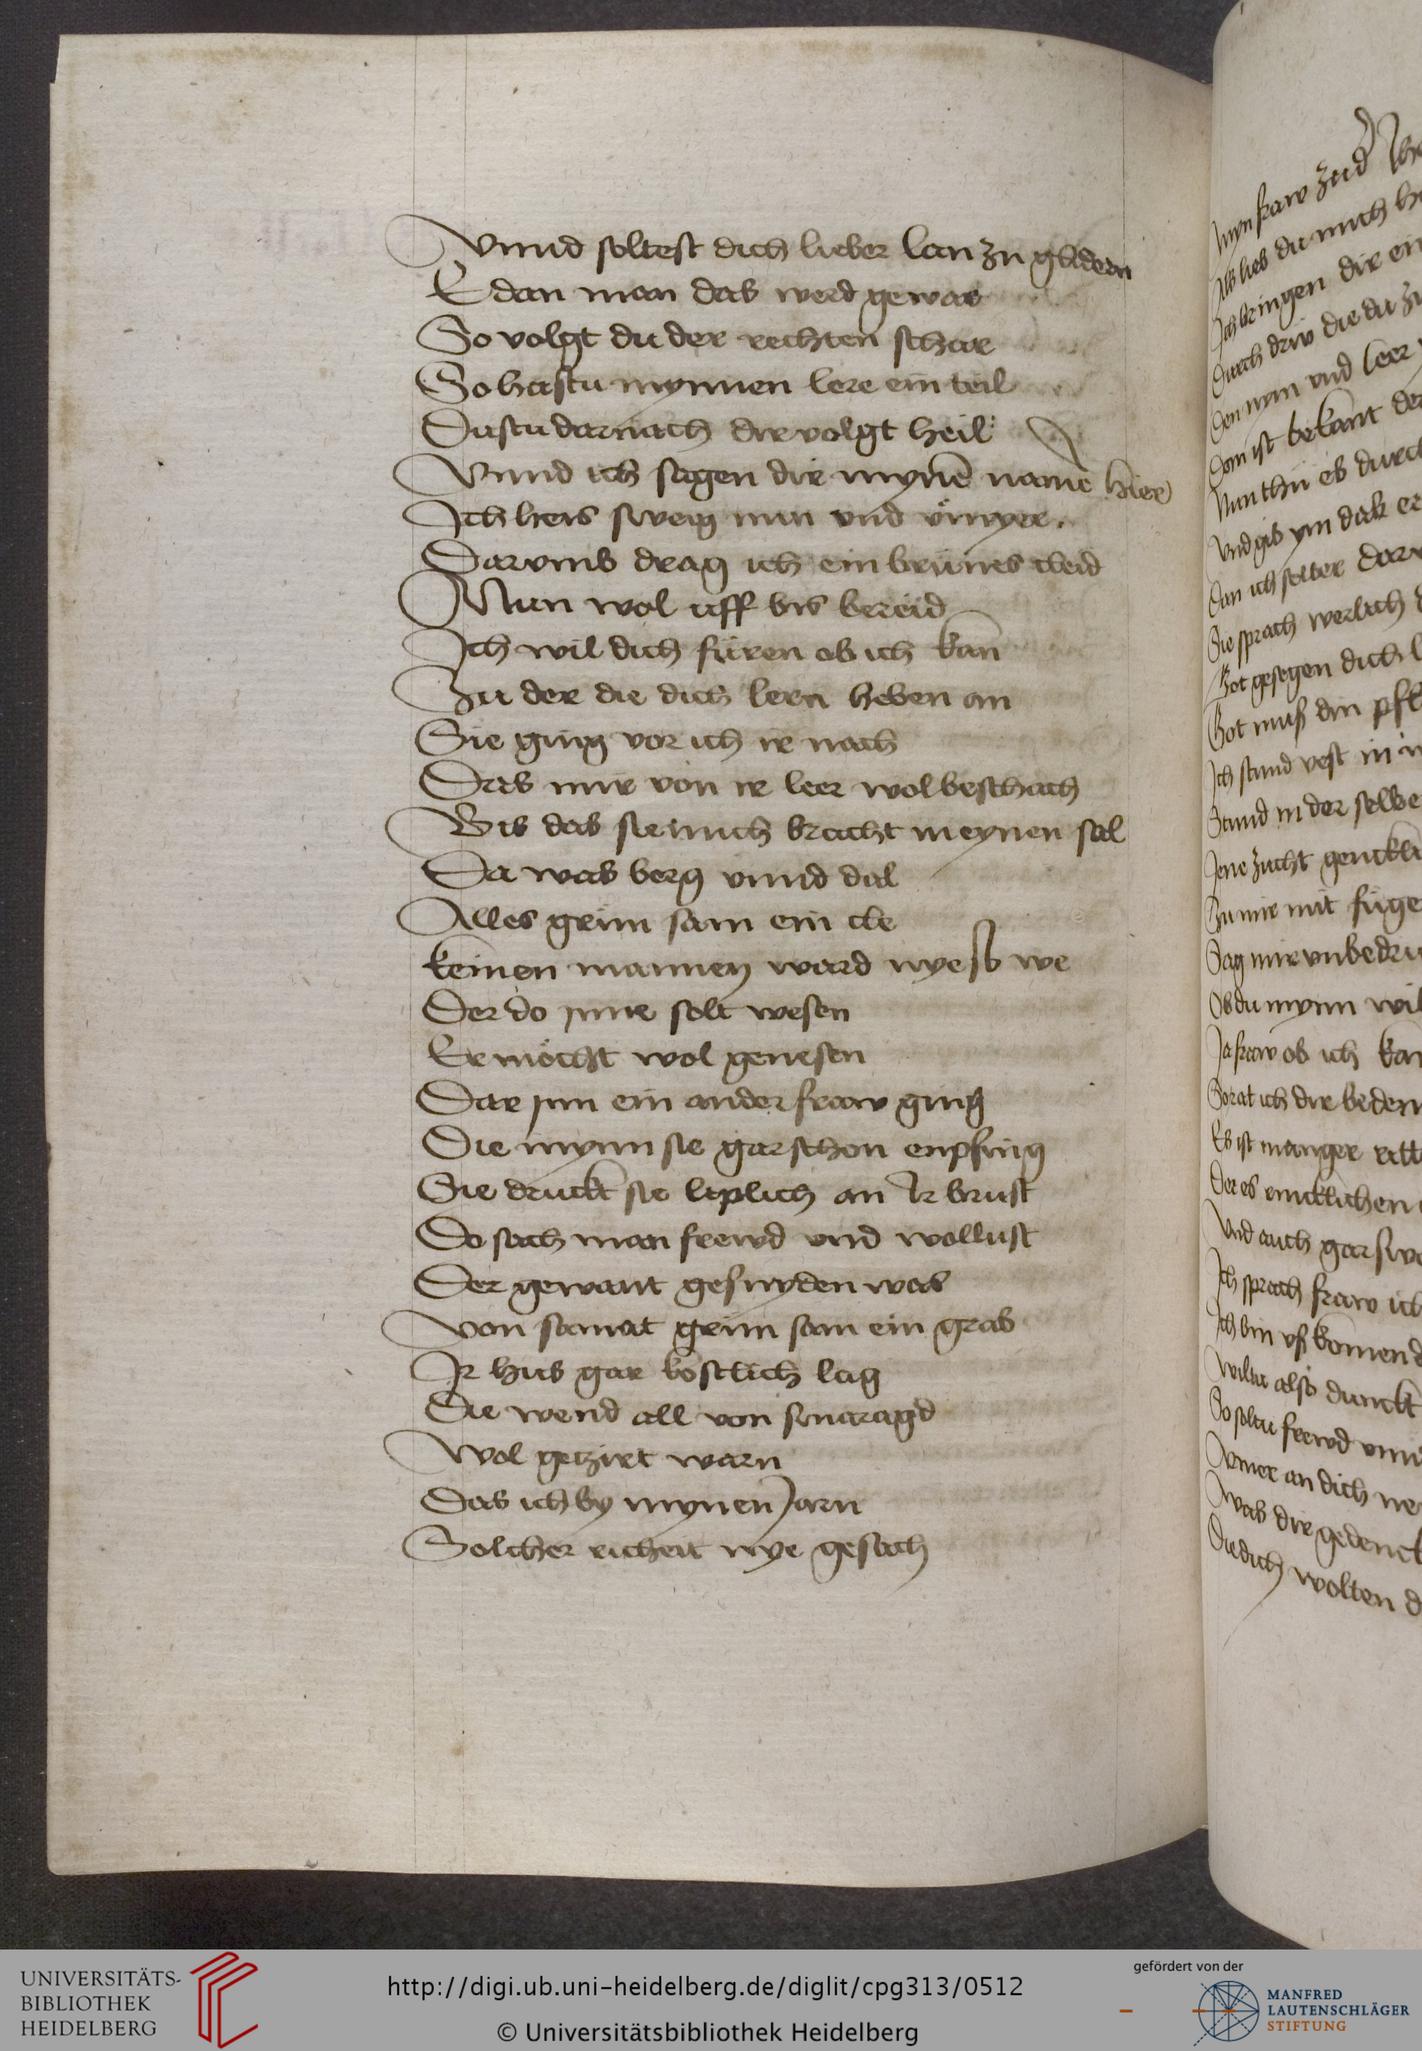 Vnnd soltest dich lieber lan zu glidern
E dan man das werd gewar
So volgt du der rechten schar
So hastu mynnen lere ein teil
Dustu darnach dir volgt heil
Vnnd ich sagen dir mynē namē hier
Ich heis sweig nun vnd ymer
Darvmb drag ich ein brunes cleid
Nun wol uff bis bereid
Ich wil dich füren ob ich kan
Zu der die dich lern heben an
Sie ging vor ich ir nach
Das mir von ir leer wol beschach
Bis das sie mich bracht in eynen sal
Da was berg vnnd dal
Alles grün sam ein cle
keinen mannen ward nye so we
Der do jnne solt wesen
Er möcht wol genesen
Dar jnn ein ander fraw ging
Die mynn sie gar schon enpfing
Sie druckt sie lieplich an ir brust
Do sach man frewd vnd wollust
Der gewant gesnyden was
Von samat grün sam ein gras
Ir hus gar köstlich lag
Die wend all von smaragd
Wol getzirt warn
Das ich by mynen jarn
Solcher richeit nye gesach
Myn fraw
Als lieb du mich
Ich bringen dir ein
Durch driw die du zu
Den mynn vnd leer
Dem ist bekant der
Nun thu es durch
Vnd gib ym
Dan ich selber dar
Sie sprach werlich
Got gesegen dich
Got mus din
Ich stund vest in
Stund in der selbe
Jene zucht
Zu mir mit füge
Sag mir vnbedru
Ob du mynn wil
Ja fraw ob ich kan
So rat ich dir
Es ist manger ritt
Der es
Vnd auch gar
Ich sprach fraw ich
Ich bin vß komen
Wiltu also dunckt
So soltu frewd vnn
Ymer an dich
Was dir gedenck
Die dich wolten
UNIVERSITÄTS-
BIBLIOTHEK
HEIDELBERG
http://digi.ub.uni-heidelberg.de/diglit/cpg313/0512
© Universitätsbibliothek Heidelberg
gefördert von der
MANFRED
LAUTENSCHLÄGER
STIFTUNG